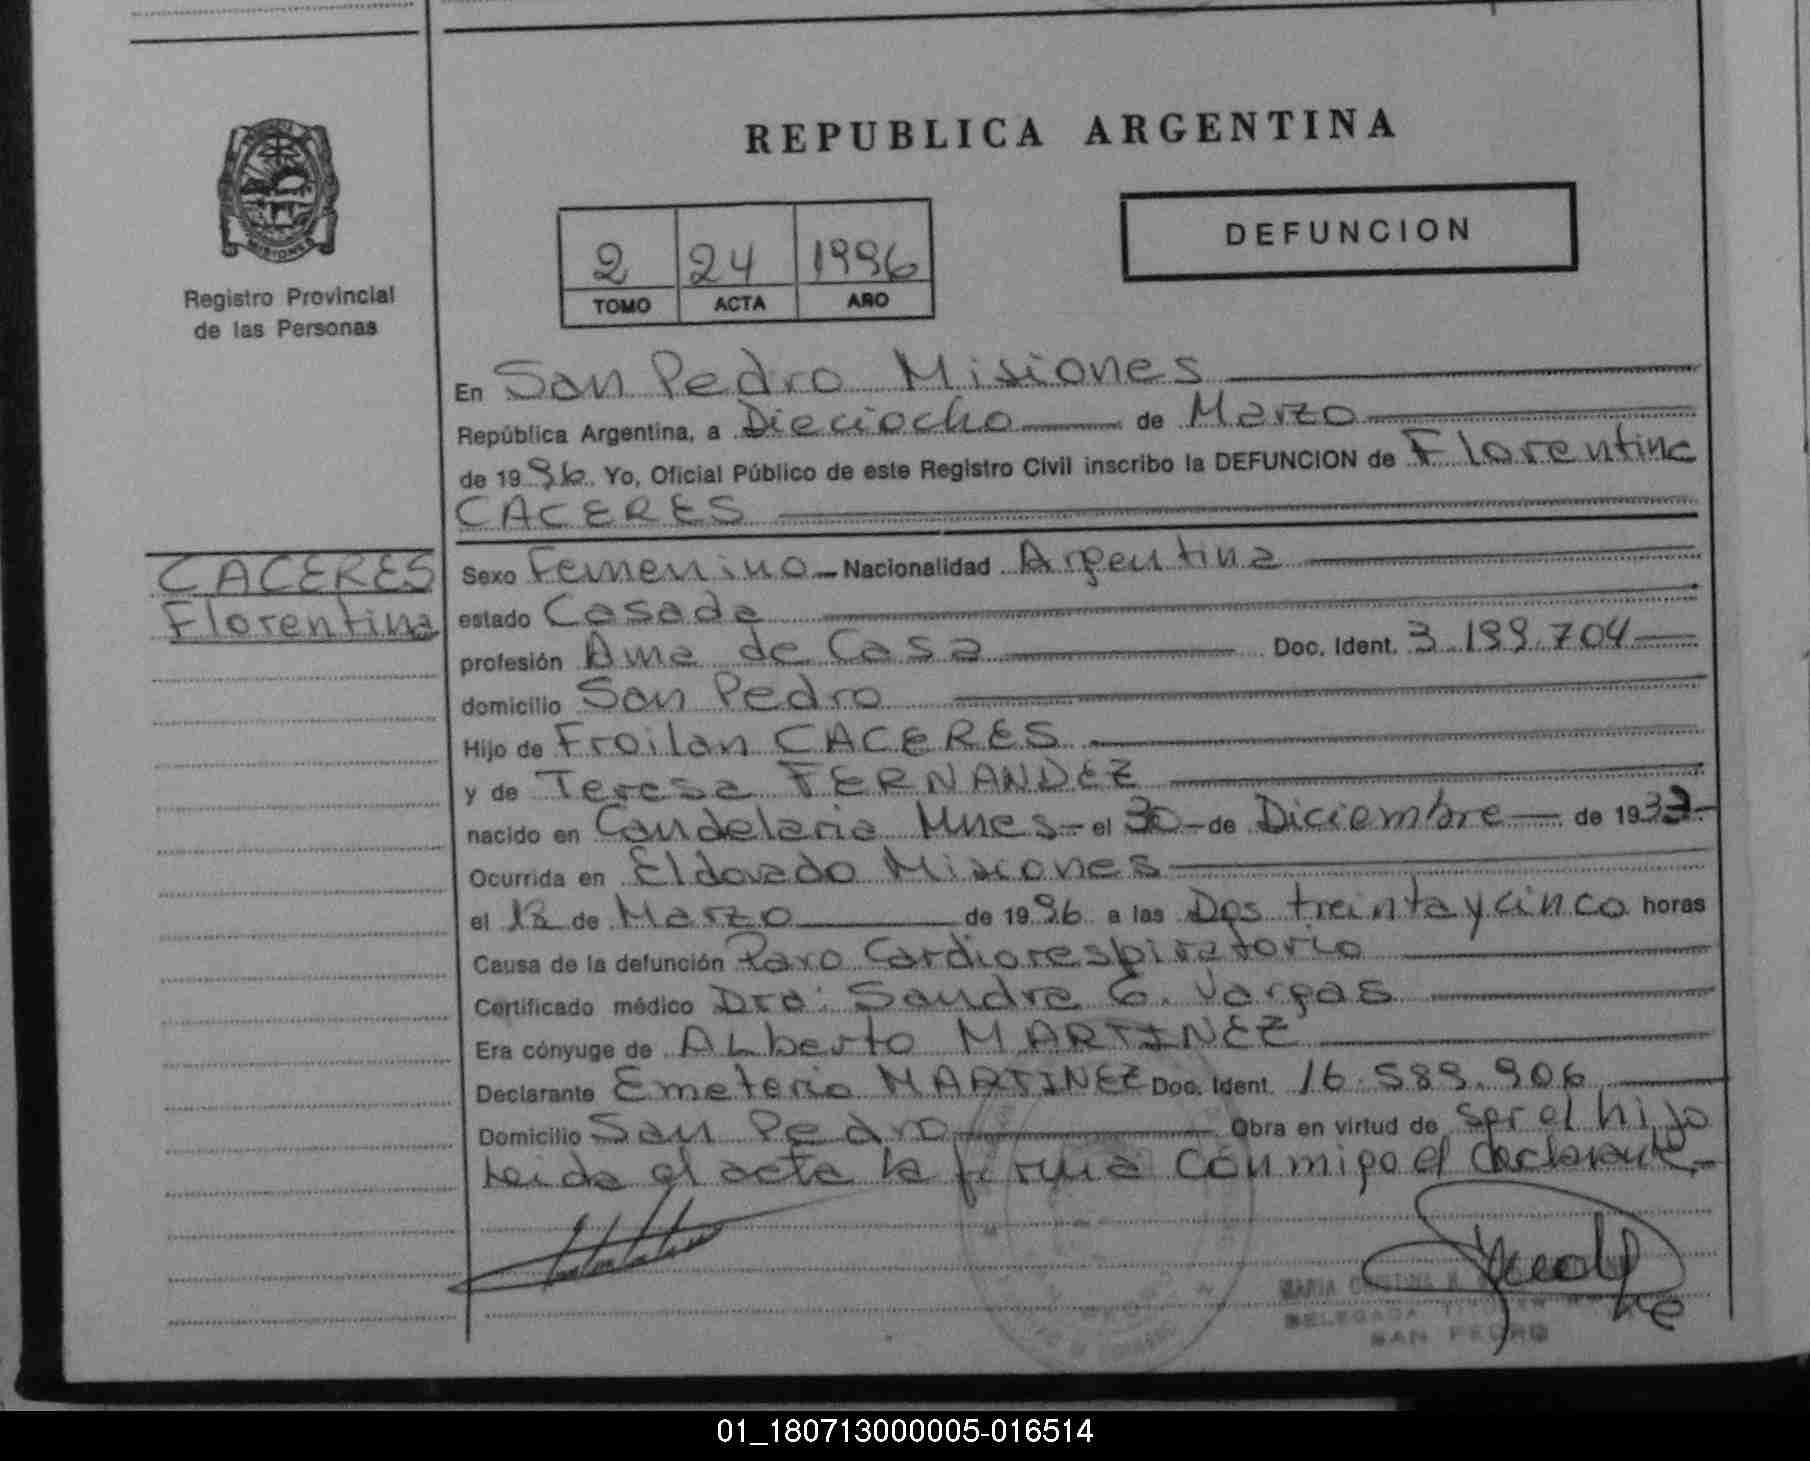 REPUBLICA ARGENTINA
MISIONES
Registro Provincial
de las Personas
2 24 1996
TOMO ACTA AÑO
DEFUNCION
En San Pedro Misiones
República Argentina, a Dieciocho de Marzo
de 1996. Yo, Oficial Público de este Registro Civil inscribo la DEFUNCION de Florentina
CACERES
CACERES
Florentina
Sexo Femenino Nacionalidad Argentina
estado Casada
profesión Ama de Casa Doc. Ident. 3.199.704
domicilio San Pedro
Hijo de Froilan CACERES
y de Teresa FERNANDEZ
nacido en Candelaria Mnes el 30 de Diciembre de 1933
Ocurrida en Eldorado Misiones
el de Marzo de 1996 a las Dos treinta y cinco horas
Causa de la defunción Paro Cardiorespiratorio
Certificado médico Dra: Sandra G. Vargas
Era cónyuge de ALberto MARTINEZ
Declarante Emeterio MARTINEZ Doc. Ident. 16.589.906
Domicilio San Pedro Obra en virtud de ser el hijo
Leida el acta la firma conmigo el declarante
MARIA CRISTINA
DELEGADA TITULAR
SAN PEDRO
01_180713000005-016514